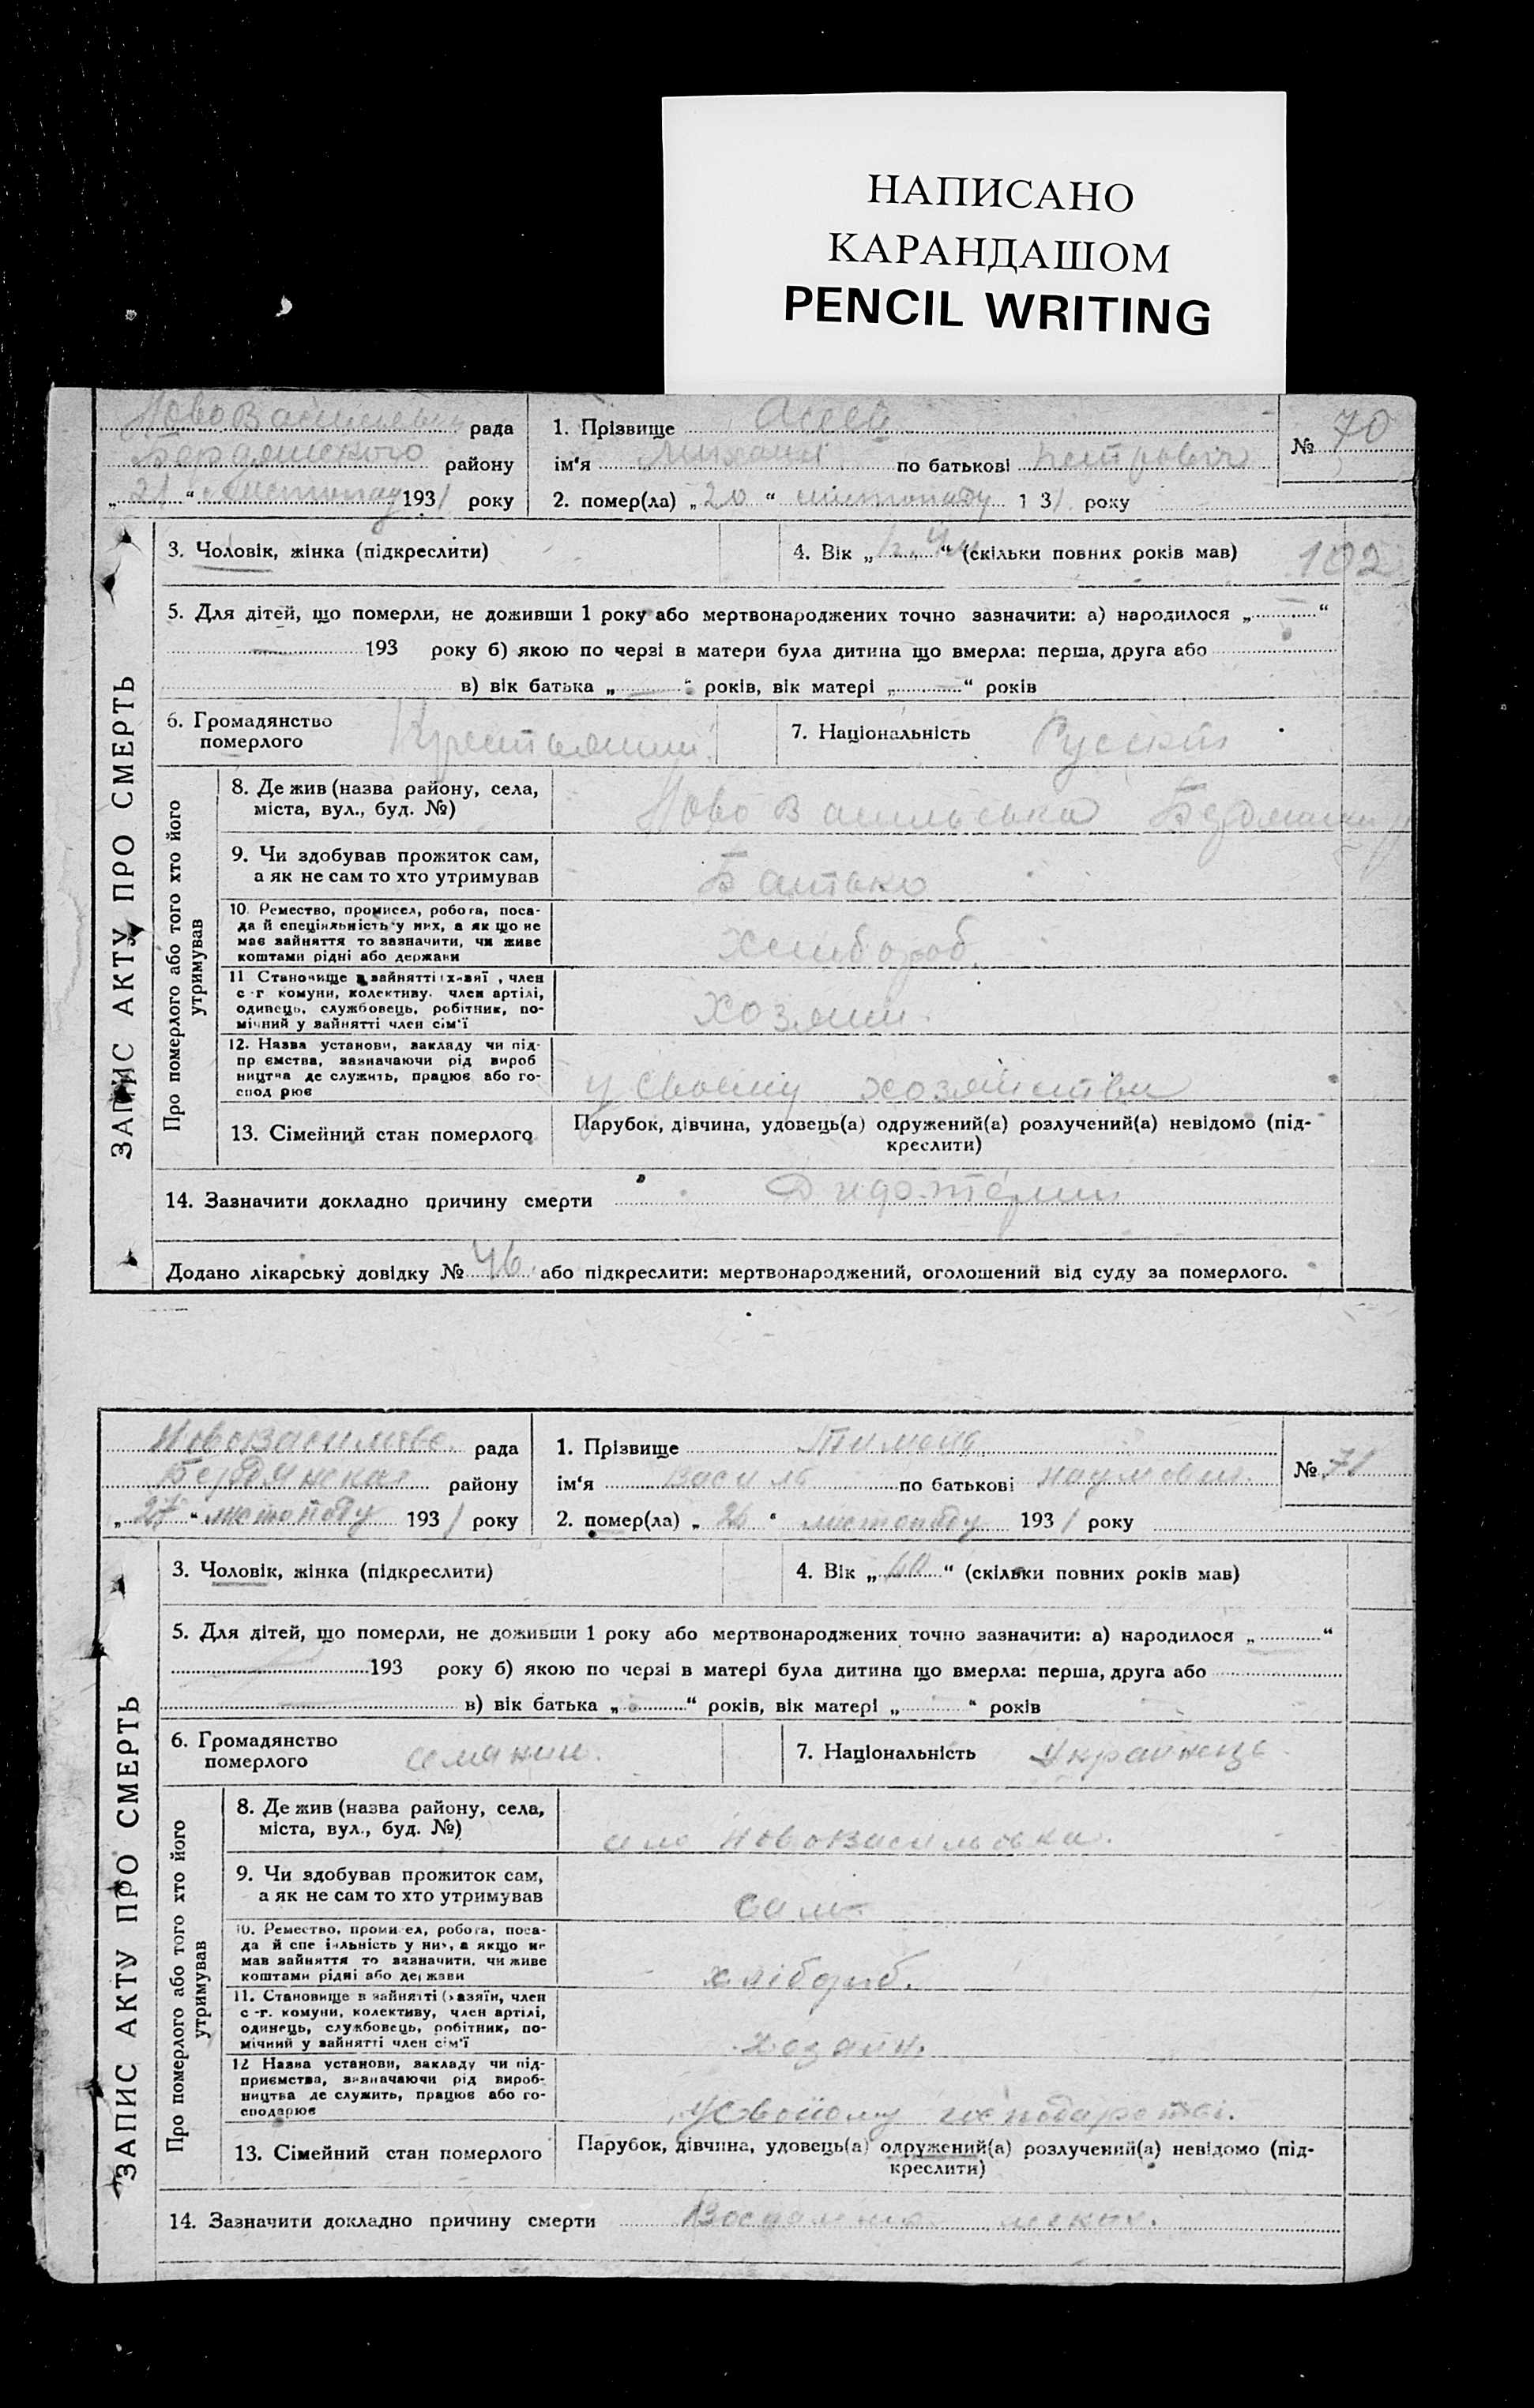 НАПИСАНО
КАРАНДАШОМ
PENCIL WRITING
рада
Бердянского району
„ 21 “ листопад 1931 року
1. Прізвище Асеев
ім'я Михаил по батькові Петрович
2. помер(ла) „ 20 “ листопаду 1 31 року
№ 70
102
ЗАПИС АКТУ ПРО СМЕРТЬ
3. Чоловік, жінка (підкреслити)
4. Вік „ “ (скільки повних років мав)
5. Для дітей, що померли, не доживши 1 року або мертвонароджених точно зазначити: а) народилося „ “
193 року б) якою по черзі в матери була дитина що вмерла: перша, друга або
в) вік батька „ “ років, вік матері „ “ років
6. Громадянство
померлого
7. Національність Русский
Про померлого або того хто його
утримував
8. Де жив (назва району, села,
міста, вул., буд. №)
Ново Васильевка
9. Чи здобував прожиток сам,
а як не сам то хто утримував
Батько
10. Ремество, промисел, робота, поса-
да й спеціяльність у них, а як що не
має зайняття то зазначити, чи живе
коштами рідні або держави
Хлибороб
11 Становище в зайнятті (хазяї , член
с-г комуни, колективу. член артілі,
одинець, службовець, робітник, по-
мічний у зайнятті член сім'ї
Хозяин.
12. Назва установи, закладу чи під-
пр ємства, зазначаючи рід вироб
ництва де служить, працює або го-
спод рює
у своему хозяйстви
13. Сімейний стан померлого
Парубок, дівчина, удовець(а) одружений(а) розлучений(а) невідомо (під-
креслити)
14. Зазначити докладно причину смерти
Додано лікарську довідку № 46 або підкреслити: мертвонароджений, оголошений від суду за померлого.
рада
району
„ 27 “ листопаду 1931 року
1. Прізвище
ім'я Василь по батькові Наумович
2. помер(ла) „ 26 “ листопаду 1931 року
№ 71
ЗАПИС АКТУ ПРО СМЕРТЬ
3. Чоловік, жінка (підкреслити)
4. Вік „ 60 “ (скільки повних років мав)
5. Для дітей, що померли, не доживши 1 року або мертвонароджених точно зазначити: а) народилося „ “
193 року б) якою по черзі в матері була дитина що вмерла: перша, друга або
в) вік батька „ “ років, вік матері „ “ років
6. Громадянство
померлого
7. Національність Українець
Про померлого або того хто його
утримував
8. Де жив (назва району, села,
міста, вул., буд. №)
село Нововасильовка.
9. Чи здобував прожиток сам,
а як не сам то хто утримував
сам
10. Ремество, проми ел, робота, поса-
да й спе іяльність у них, а якщо не
мав зайняття то зазначити, чи живе
коштами рідні або держави
хлібороб.
11. Становище в зайнятті (хазяїн, член
с-г. комуни, колективу, член артілі,
одинець, службовець, робітник, по-
мічний у зайнятті член сім'ї
хозяїн.
12 Назва установи, закладу чи під-
приємства, зазначаючи рід вироб-
ництва де служить, працює або го-
сподарює
У своїому господарстві.
13. Сімейний стан померлого
Парубок, дівчина, удовець(а) одружений(а) розлучений(а) невідомо (під-
креслити)
14. Зазначити докладно причину смерти Воспаления легких.